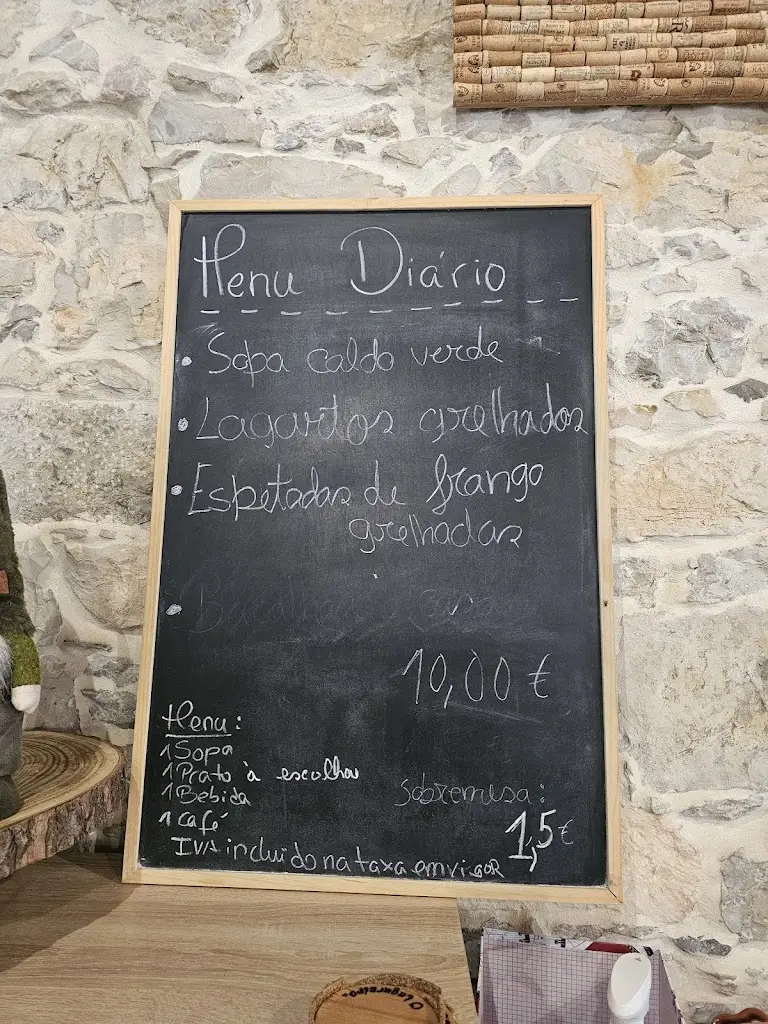 Menu Diário
Sopa caldo verde
Lagartos grelhados
Espetadas de frango
grelhadas
10,00 €
Menu:
1 Sopa
1 Prato à escolha
1 Bebida
1 café
IVA incluido na taxa em vigor
Sobremesa:
1,5 €
O Lagareiro